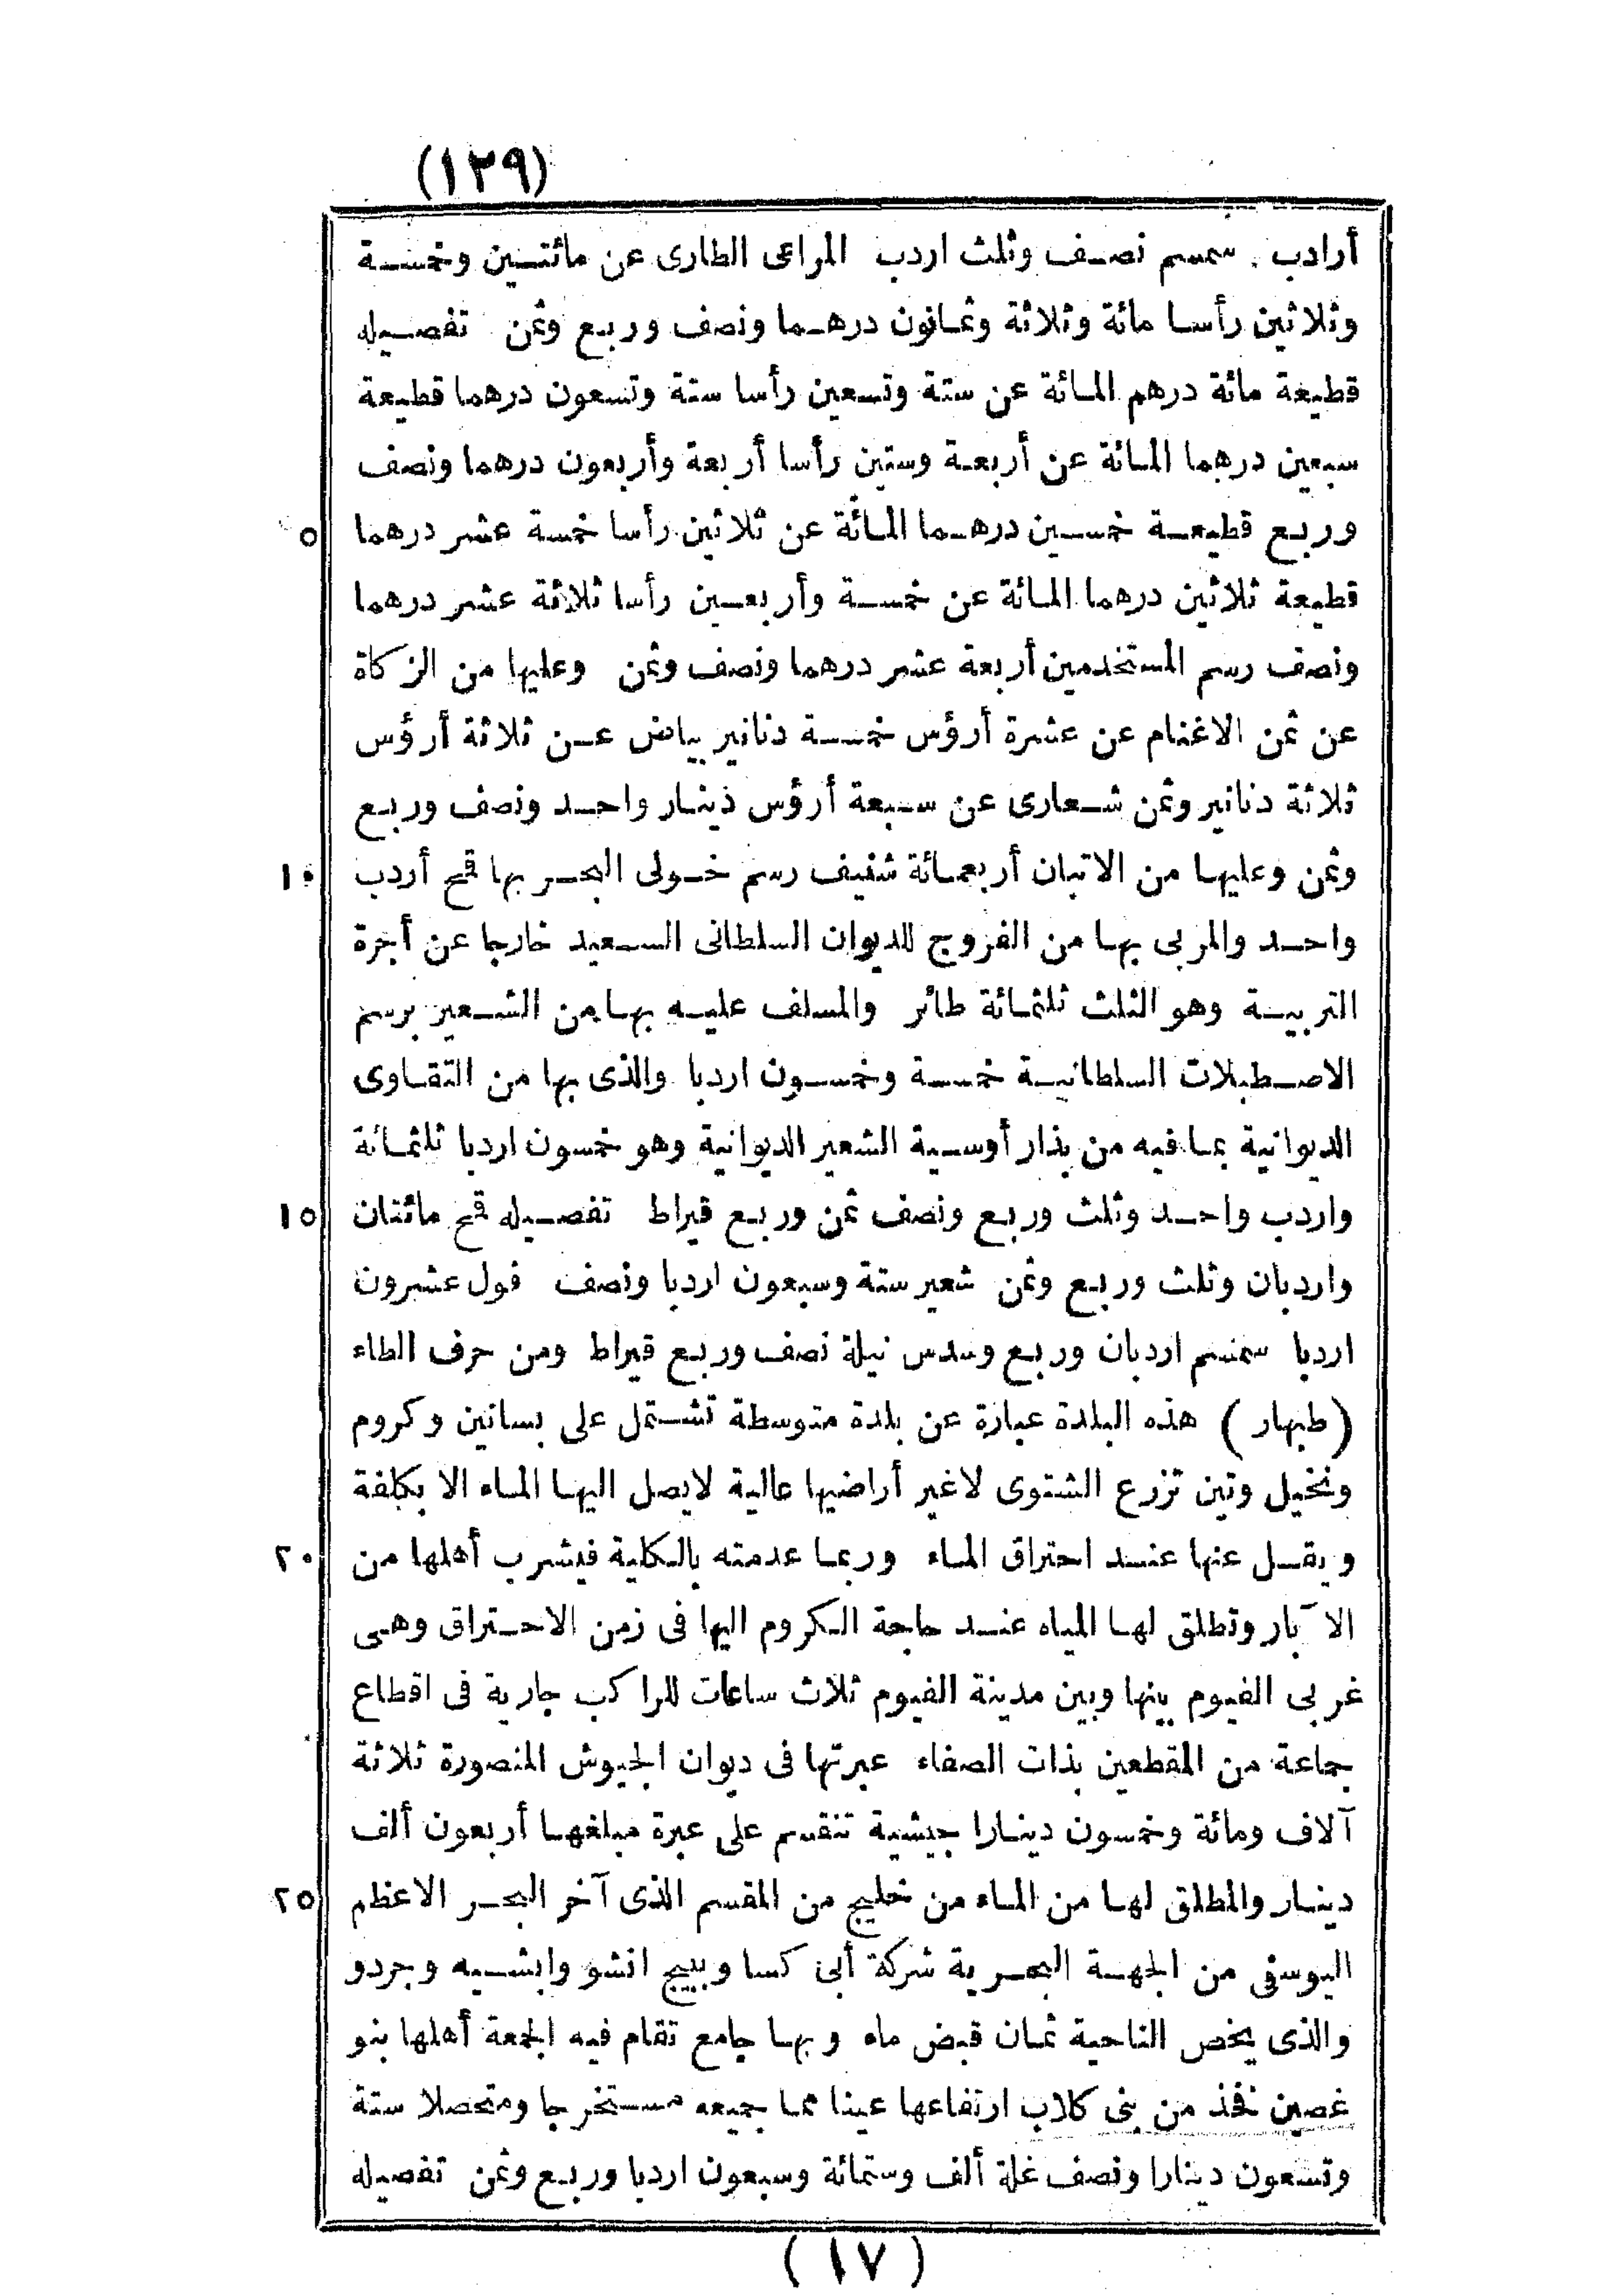 (١٢٩)
أرادب . سمسم نصف وثلث اردب المراعى الطارى عن مائتين وخمسة
وثلاثين رأسا مائة وثلاثة وثمانون درهما ونصف وربع وثمن تفصيله
قطيعة مائة درهم المائة عن ستة وتسعين رأسا ستة وتسعون درهما قطيعة
سبعين درهما المائة عن أربعة وستين رأسا أربعة وأربعون درهما ونصف
٥ وربع قطيعة خمسين درهما المائة عن ثلاثين رأسا خمسة عشر درهما
قطيعة ثلاثين درهما المائة عن خمسة وأربعين رأسا ثلاثة عشر درهما
ونصف رسم المستخدمين أربعة عشر درهما ونصف وثمن وعليها من الزكاة
عن ثمن الاغنام عن عشرة أرؤس خمسة دنانير بياض عن ثلاثة أرؤس
ثلاثة دنانير وثمن شعارى عن سبعة أرؤس دينار واحد ونصف وربع
١٠ وثمن وعليها من الاتبان أربعمائة شنيف رسم خولى البحر بها قمح أردب
واحد والمربى بها من الفروج للديوان السلطانى السعيد خارجا عن أجرة
التربية وهو الثلث ثلثمائة طائر والمسلف عليه بها من الشعير برسم
الاصطبلات السلطانية خمسة وخمسون اردبا والذى بها من التقاوى
الديوانية بما فيه من بذار أوسية الشعير الديوانية وهو خمسون اردبا ثلثمائة
١٥ واردب واحد وثلث وربع ونصف ثمن وربع قيراط تفصيله قمح مائتان
واردبان وثلث وربع وثمن شعير ستة وسبعون اردبا ونصف فول عشرون
اردبا سمسم اردبان وربع وسدس نيلة نصف وربع قيراط ومن حرف الطاء
(طبهار) هذه البلدة عبارة عن بلدة متوسطة تشتمل على بساتين وكروم
ونخيل وتين تزرع الشتوى لاغير أراضيها عالية لايصل اليها الماء الا بكلفة
٢٠ ويقل عنها عند احتراق الماء وربما عدمته بالكلية فيشرب أهلها من
الآبار وتطلق لها المياه عند حاجة الكروم اليها فى زمن الاحتراق وهى
غربى الفيوم بينها وبين مدينة الفيوم ثلاث ساعات للراكب جارية فى اقطاع
جماعة من المقطعين بذات الصفاء عبرتها فى ديوان الجيوش المنصورة ثلاثة
آلاف ومائة وخمسون دينارا جيشية تنقسم على عبرة مبلغها أربعون ألف
٢٥ دينار والمطلق لها من الماء من خليج من المقسم الذى آخر البحر الاعظم
اليوسفى من الجهة البحرية شركة أبى كسا وببيج انشو وابشيه وجردو
والذى يخص الناحية ثمان قبض ماء وبها جامع تقام فيه الجمعة أهلها بنو
غصين فخذ من بنى كلاب ارتفاعها عينا مما جميعه مستخرجا ومتحصلا ستة
وتسعون دينارا ونصف غلة ألف وستمائة وسبعون اردبا وربع وثمن تفصيله
(١٧)